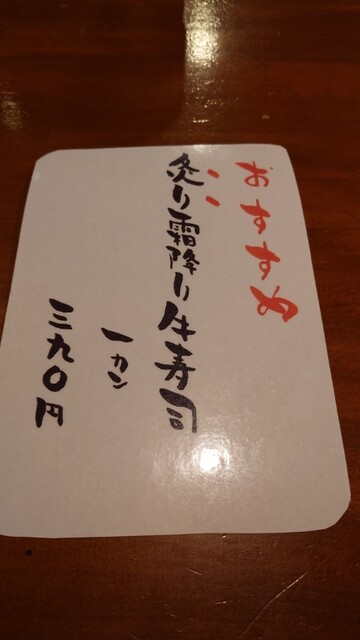 おすすめ
炙り霜降り牛寿司
一カン
三九〇円